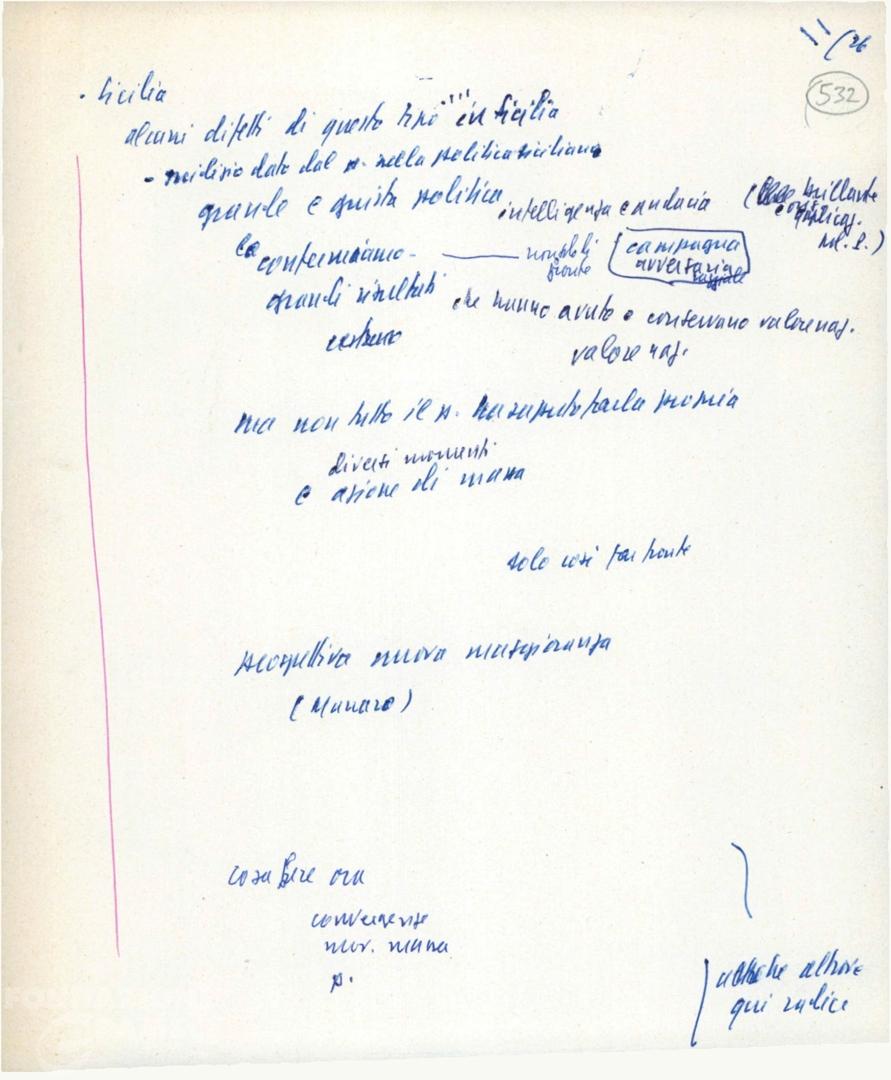 11/26
532
· Sicilia
alcuni difetti di questo tipo in Sicilia
- giudizio dato dal p. nella politica siciliana
grande e giusta politica
intelligenza e audacia
(brillante
applicaz.
M. S.)
la confermiamo -
campagna
avversaria
grandi risultati
che hanno avuto e conservano valore naz.
valore naz.
ma non tutto il p. ha saputo farla propria
diversi momenti
e azione di massa
solo così far fronte
prospettiva nuova maggioranza
(Munaro)
cosa fare ora
convergenze
mov. massa
p.
anche altrove
qui radice